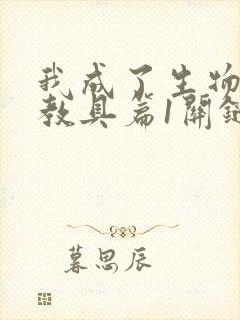 我成了生物
教具篇1關鍵
暮思辰